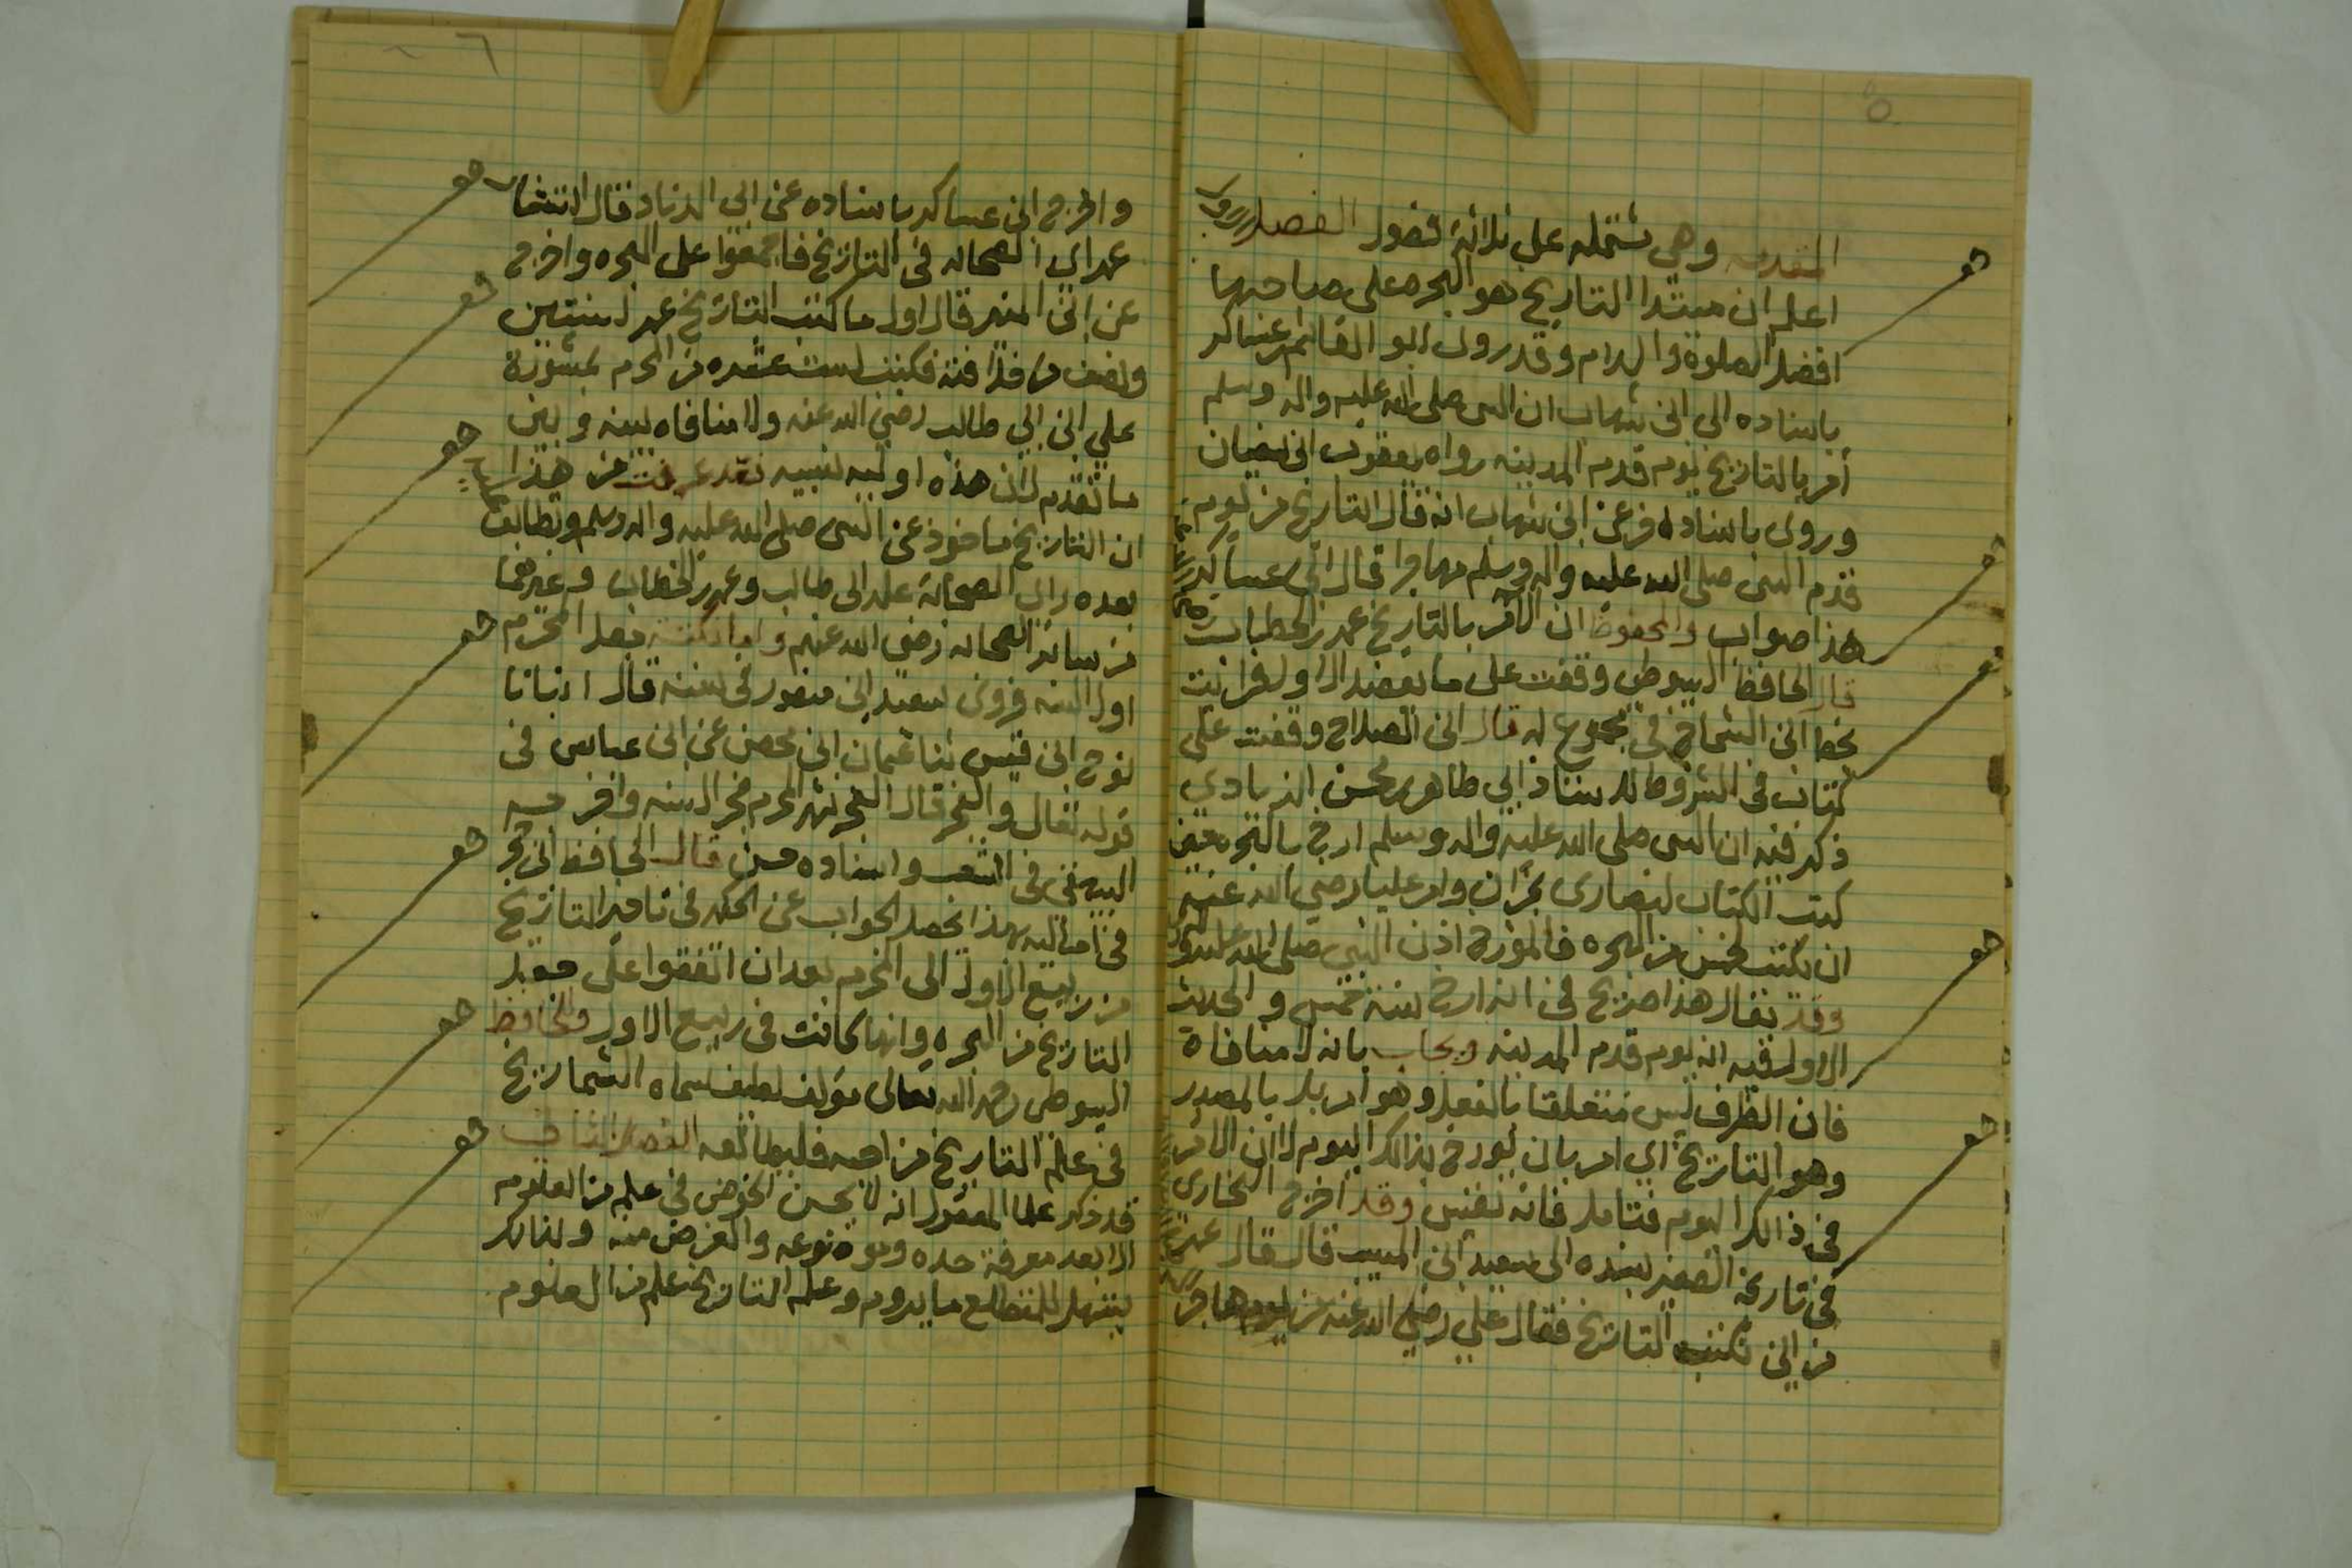 ٥
المقدمه وهي مشتمله على ثلاثة فصول الفصل الاول
اعلم ان مبتدا التاريخ هو الهجره على صاحبها
افضل الصلوة والسلام وقد روى ابو القاسم ابن عساكر
باسناده الى ابن شهاب ان النبي صلى الله عليه واله وسلم
أمر بالتاريخ يوم قدم المدينه رواه يعقوب ابن سفيان
وروى باسناده عن ابن شهاب انه قال التاريخ من يوم
قدم النبي صلى الله عليه واله وسلم مهاجرا قال ابن عساكر
هذا صواب والمحفوظ ان الآمر بالتاريخ عمر بن الخطاب
قال الحافظ السيوطي وقفت على ما يعضد الاول فرايت
بخط ابن القماح في مجموع له قال ابن الصلاح وقفت على
كتاب في الشروط للاستاذ ابي طاهر بن محسن الزيادي
ذكر فيه ان النبي صلى الله عليه واله وسلم ارخ بالهجره حين
كتب الكتاب لنصارى نجران وامر عليا رضي الله عنه
ان يكتب لخمس من الهجره فالمؤرخ اذن النبي صلى الله عليه
وقد يقال هذا صريح في انه ارخ سنة خمس والحديث
الاول فيه انه يوم قدم المدينه ويجاب بانه لا منافاة
فان الظرف ليس متعلقا بالفعل وهو امر بل بالمصدر
وهو التاريخ اي امر بان يورخ بذالك اليوم لا ان الامر
في ذالك اليوم فتامل فانه نفيس وقد اخرج البخاري
في تاريخه الصغير بسنده الى سعيد ابن المسيب قال قال عمر
من اين نكتب التاريخ فقال علي رضي الله عنه من يوم هاجر
٦
واخرج ابن عساكر باسناده عن ابي الزناد قال استشار
عمر اي الصحابه في التاريخ فاجمعوا على الهجره واخرج
عن ابن المسيب قال اول ما كتب التاريخ عمر لسنتين
ونصف من خلافته فكتب لست عشره من المحرم بمشورة
علي ابن ابي طالب رضي الله عنه ولا منافاه بينه وبين
ما تقدم لان هذه اوليه نسبيه فقد عرفت من هذا
ان التاريخ ماخوذ عن النبي صلى الله عليه واله وسلم وتطابق
بعده راي الصحابة علي ابن ابي طالب وعمر بن الخطاب وغيرهما
من سائر الصحابه رضي الله عنهم واما نكتة جعل المحرم
اول السنه فروى سعيد ابن منصور في سننه قال انبانا
نوح ابن قيس ثنا عثمان ابن محصن عن ابن عباس في
قوله تعالى والفجر قال الفجر شهر المحرم فجر السنه واخرجه
البيهقي في الشعب واسناده حسن قال الحافظ ابن حجر
في اماليه بهذا يحصل الجواب عن الحكمه في تاخير التاريخ
من ربيع الاول الى المحرم بعد ان اتفقوا على جعل
التاريخ من الهجره وانها كانت في ربيع الاول وللحافظ
السيوطي رحمه الله تعالى مؤلف لطيف سماه الشماريخ
في علم التاريخ من احبه فليطالعه الفصل الثاني
قد ذكر علما المعقول انه لا يحسن الخوض في علم من العلوم
الا بعد معرفة حده وموضوعه والغرض منه ولذالك
يسهل للمتطلع ما يروم وعلم التاريخ علم من العلوم